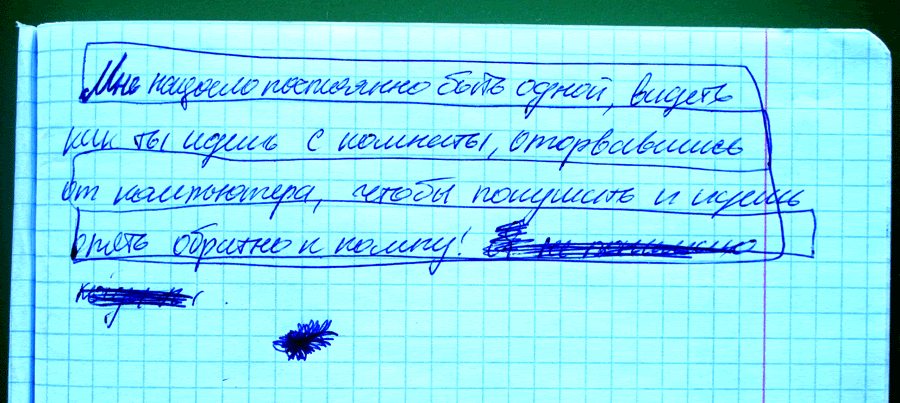 Мне надоело постоянно быть одной, видеть
как ты идешь с комнаты, оторвавшись
от компьютера, чтобы покушать и идешь
опять обратно к компу!